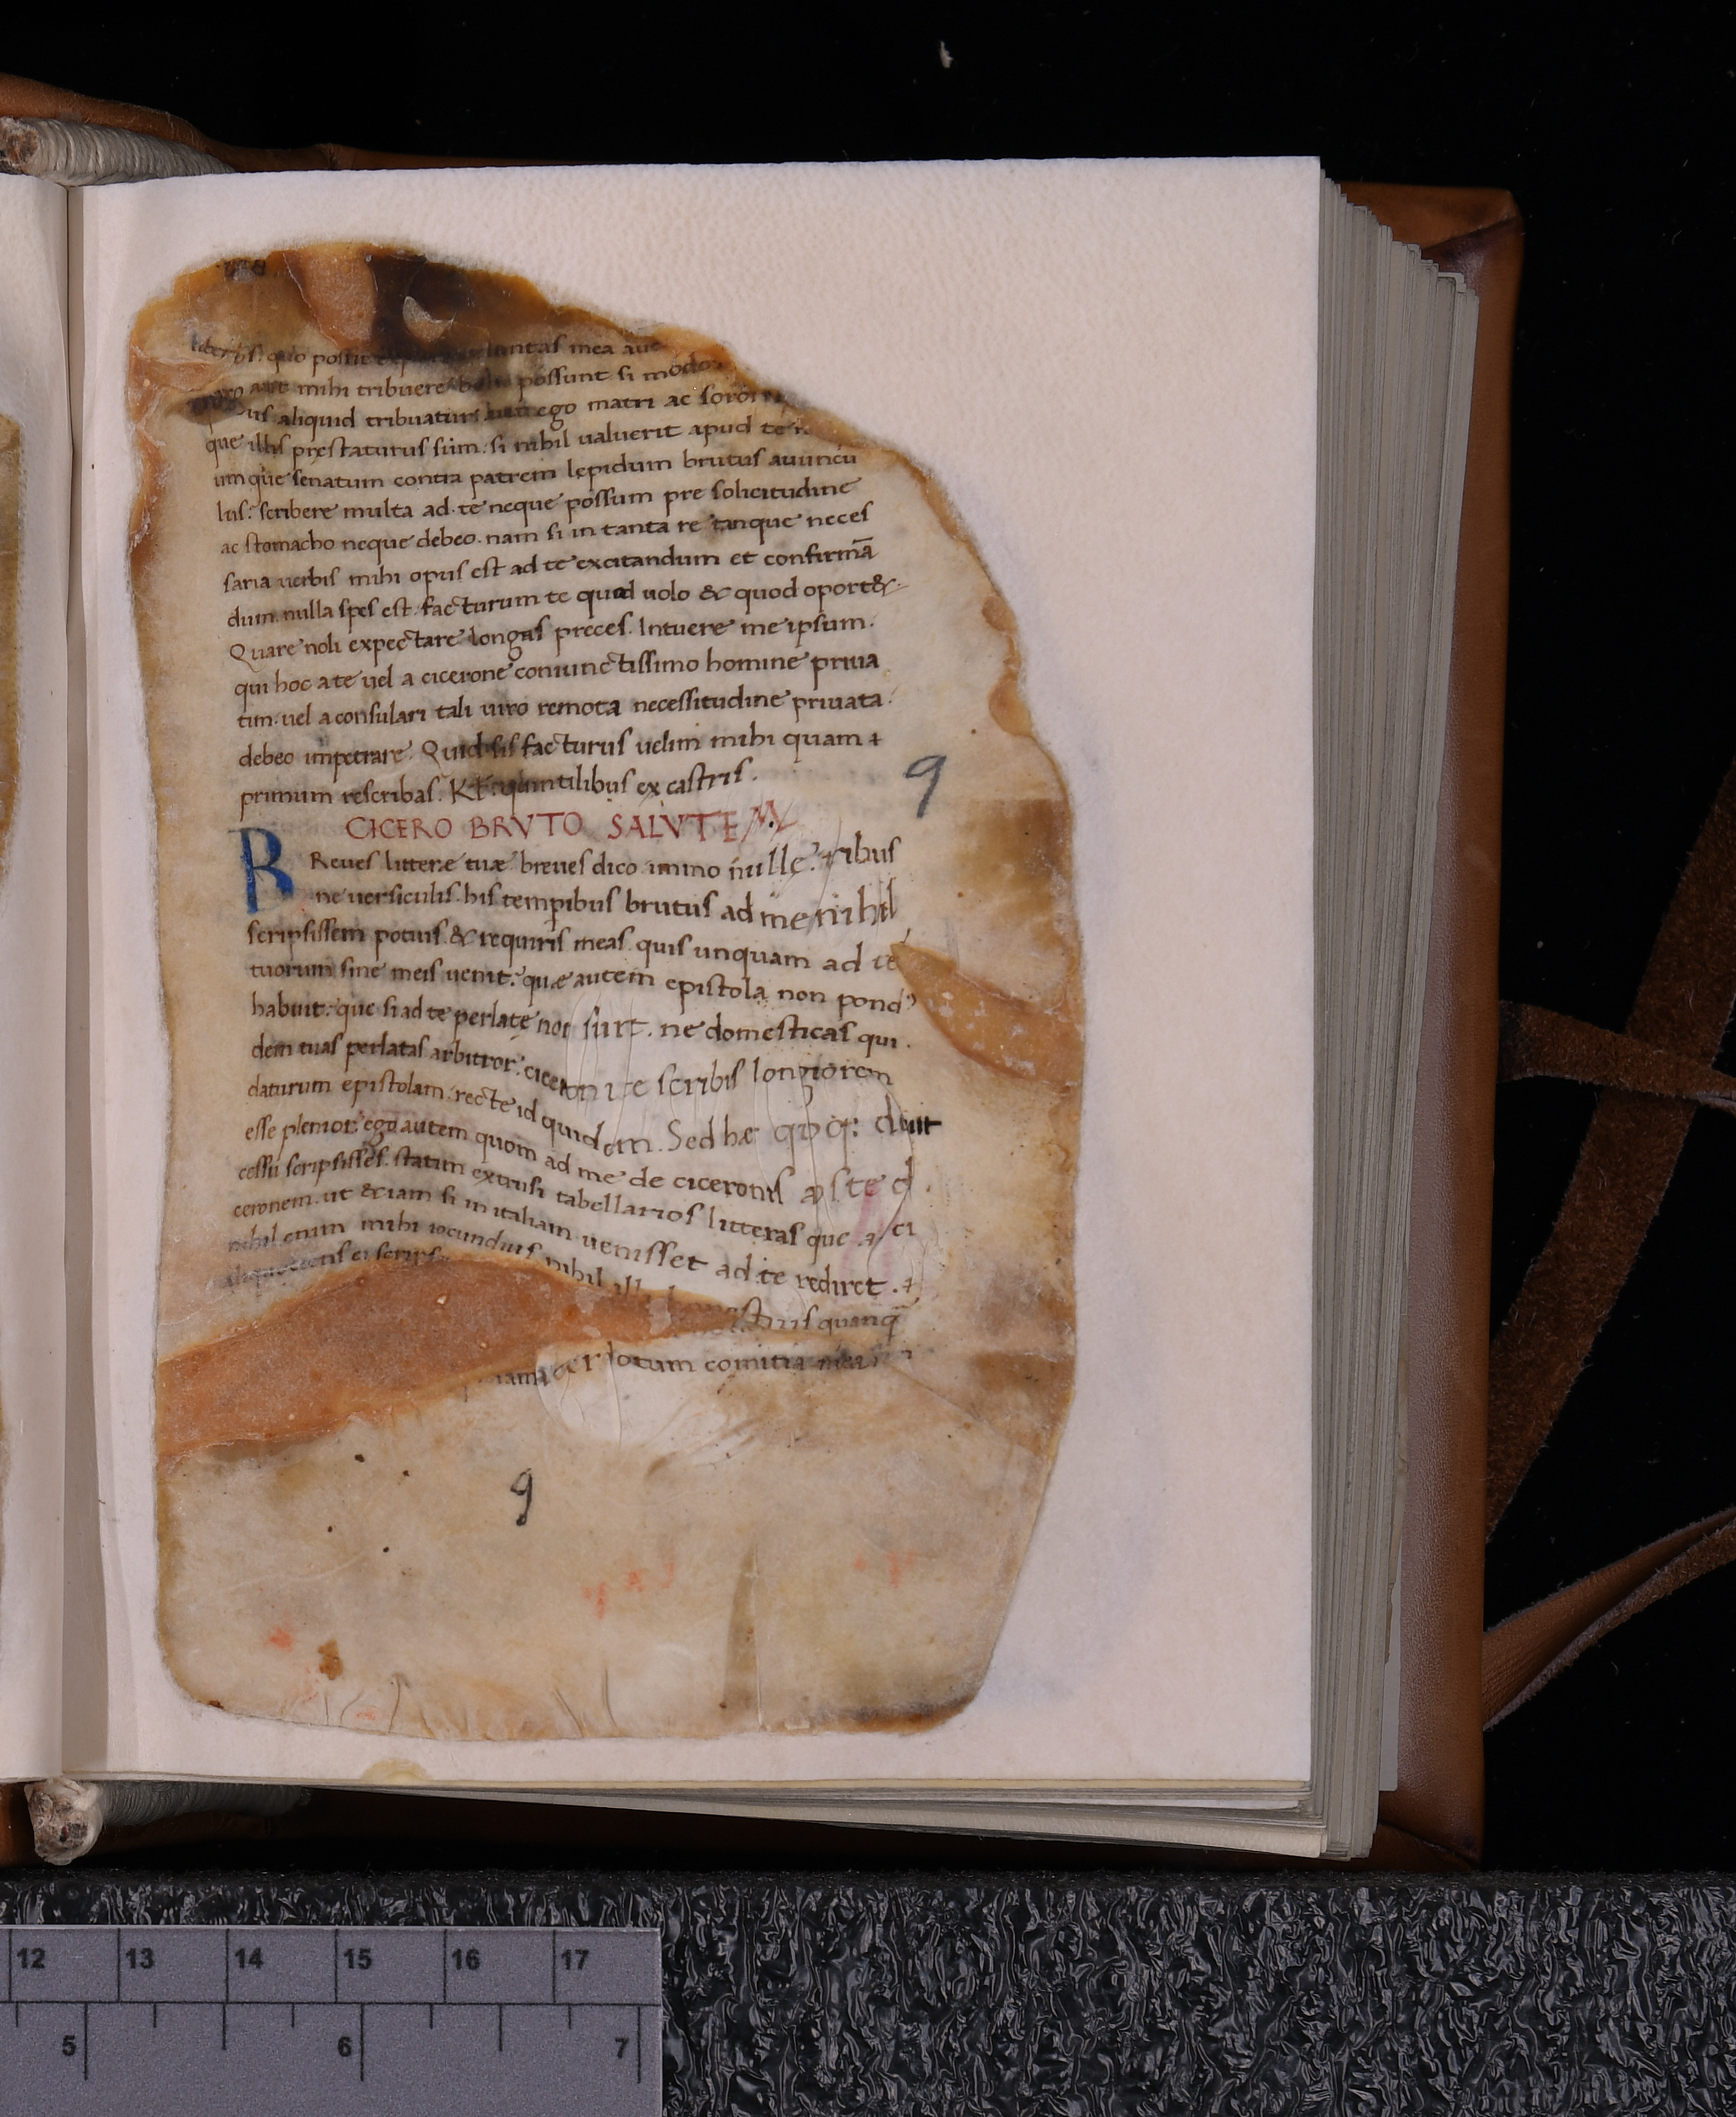 liberis: quo possit luntas mea aut
aut mihi tribuere possunt si modo
us aliquid tribuatur ego matri ac soro
que illis prestaturus sum. si nihil ualuerit apud te
umque senatum contra patrem lepidum brutus auuncu
lus: scribere multa ad te neque possum pre solicitudine
ac stomacho neque debeo. nam si in tanta re tanque neces
saria uerbis mihi opus est ad te excitandum et confirmā
dum. nulla spes est. facturum te quod uolo & quod oport&.
Quare noli expectare longas preces. Intuere me ipsum.
qui hoc a te uel a cicerone coniunctissimo homine priua
tim. uel a consulari tali uiro remota necessitudine priuata.
debeo impetrare. Quid sis facturus uelim mihi quam
primum rescribas. Kł. quintilibus ex castris.
9
CICERO BRVTO SALVTEM
BReues litteræ tuæ breues dico immo nulle. tribus
ne uersiculis. his tempibus brutus ad me nihil
scripsissem potius. & requiris meas. quis unquam ad te
tuorum sine meis uenit. quæ autem epistola non pond
habuit. que si ad te perlate non sunt. ne domesticas qui
dem tuas perlatas arbitror. ciceroni te scribis longiorem
daturum epistolam. recte id quidem. Sed hæc
esse plenior. ego autem quom ad me de ciceronis
cessu scripsisses. statim extrusi tabellarios litteras que ci
ceronem. ut &iam si in italiam uenisset ad te rediret.
nihil enim mihi iocundius nihil illi quanq̄
ei scrips
otum comitia mea
9
12 13 14 15 16 17
5 6 7